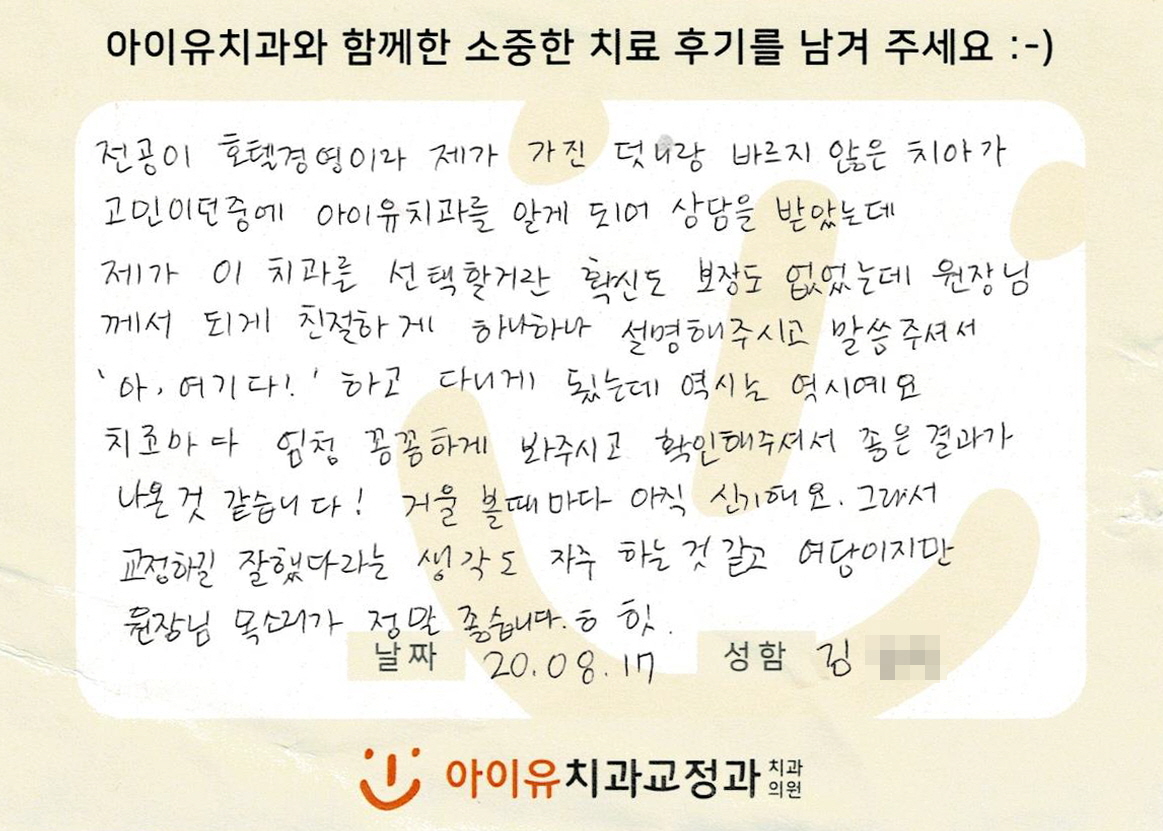 아이유치과와 함께한 소중한 치료 후기를 남겨 주세요 :-)
전공이 호텔경영이라 제가 가진 덧니랑 바르지 않은 치아가
고민이던중에 아이유치과를 알게 되어 상담을 받았는데
제가 이 치과를 선택할거란 확신도 보장도 없었는데 원장님
께서 되게 친절하게 하나하나 설명해주시고 말씀주셔서
'아, 여기다!' 하고 다니게 됬는데 역시는 역시예요
치료마다 엄청 꼼꼼하게 봐주시고 확인해주셔서 좋은 결과가
나온 것 같습니다! 거울 볼때마다 아직 신기해요. 그래서
교정하길 잘했다라는 생각도 자주 하는 것 같고 여담이지만
원장님 목소리가 정말 좋습니다. ㅎ 힛.
날짜 20.08.17 성함 김
아이유치과교정과 치과
의원